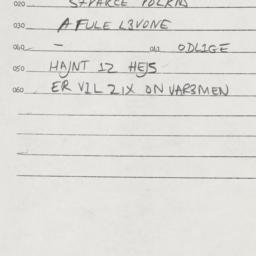 020 SZVARCE VOLKNS
030 A FULE L3VONE
040 - 041 ODL1GE
050 HAJNT 1Z HEJS
060 ER V1L Z1X ON VAR3MEN